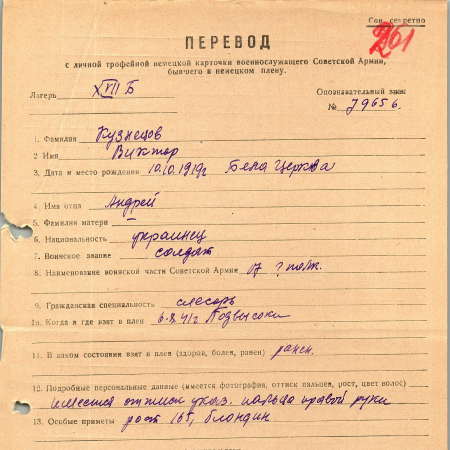 Сов. секретно
261
ПЕРЕВОД
с личной трофейной немецкой карточки военнослужащего Советской Армии,
бывшего в немецком плену.
Лагерь XVII Б Опознавательный знак
№ 79656.
1. Фамилия Кузнецов
2 Имя Виктор
3. Дата и место рождения 10.10.1919г Бела Церква
4. Имя отца Андрей
5. Фамилия матери —
6. Национальность украинец
7. Воинское звание солдат
8. Наименование воинской части Советской Армии 17
9. Гражданская специальность слесарь
10. Когда и где взят в плен 6.8.41г Подвысоки
11. В каком состоянии взят в плен (здоров, болен, ранен) ранен.
12. Подробные персональные данные (имеется фотография, оттиск пальцев, рост, цвет волос)
имеется оттиск указ. пальца правой руки
13. Особые приметы рост 165, блондин